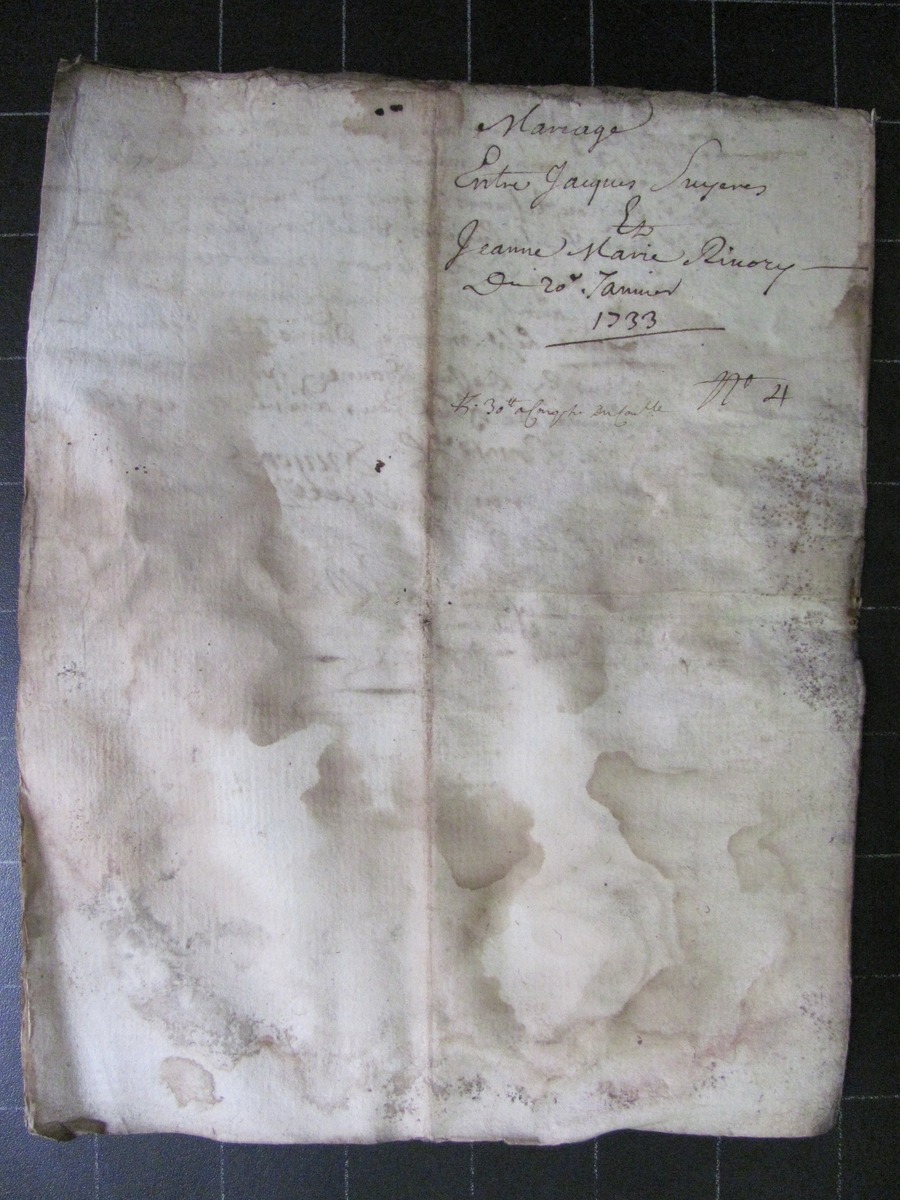 Mariage
Entre Jacques Suyeres
Et
Jeanne Marie Rivory
Du 20e Janvier
1733
No 4
30tt